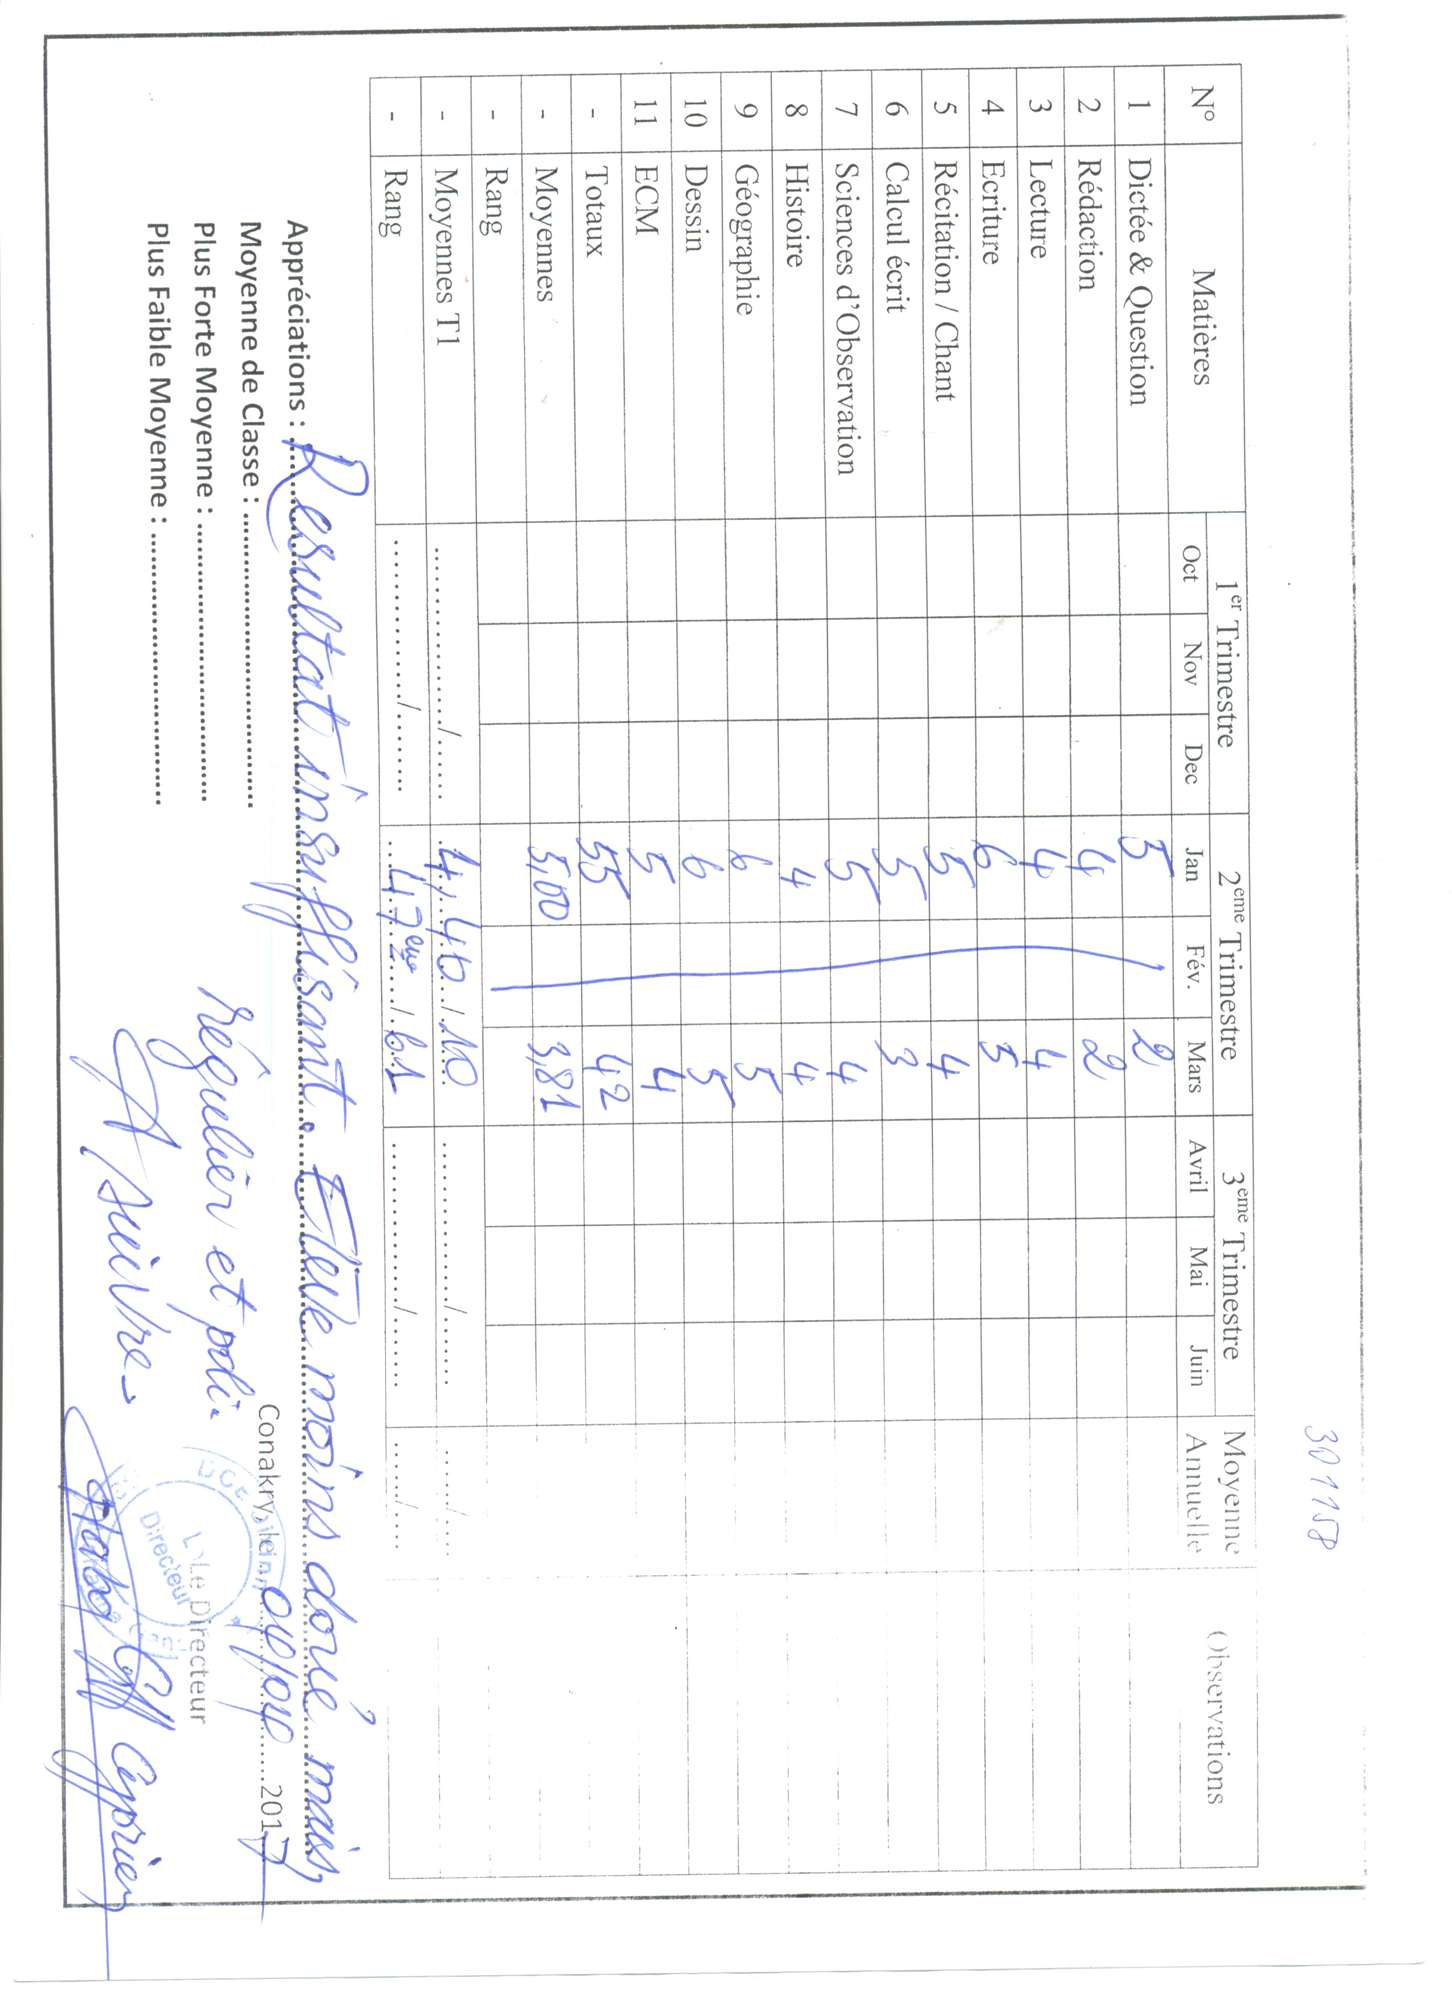 301158
N° Matières 1er Trimestre 2eme Trimestre 3eme Trimestre Moyenne Annuelle Observations
Oct Nov Dec Jan Fév. Mars Avril Mai Juin
1 Dictée & Question 5 2
2 Rédaction 4 2
3 Lecture 4 4
4 Ecriture 6 5
5 Récitation / Chant 5 4
6 Calcul écrit 5 3
7 Sciences d'Observation 5 4
8 Histoire 4 4
9 Géographie 6 5
10 Dessin 6 5
11 ECM 5 4
- Totaux 55 42
- Moyennes 5,00 3,81
- Rang
- Moyennes T1 ................../...... 4,40 / 10 ................../...... ....../....
- Rang ................/........ 47eme / 61 ................/........ ....../....
Appréciations : Resultat insuffisant. Elève moins doué mais,
Moyenne de Classe : ........................................ Conakry, le ........ 2017
Plus Forte Moyenne : ........................................ Régulier et poli.
Plus Faible Moyenne : ........................................ A suivre.
Le Directeur
DCE
Directeur
Cyprien